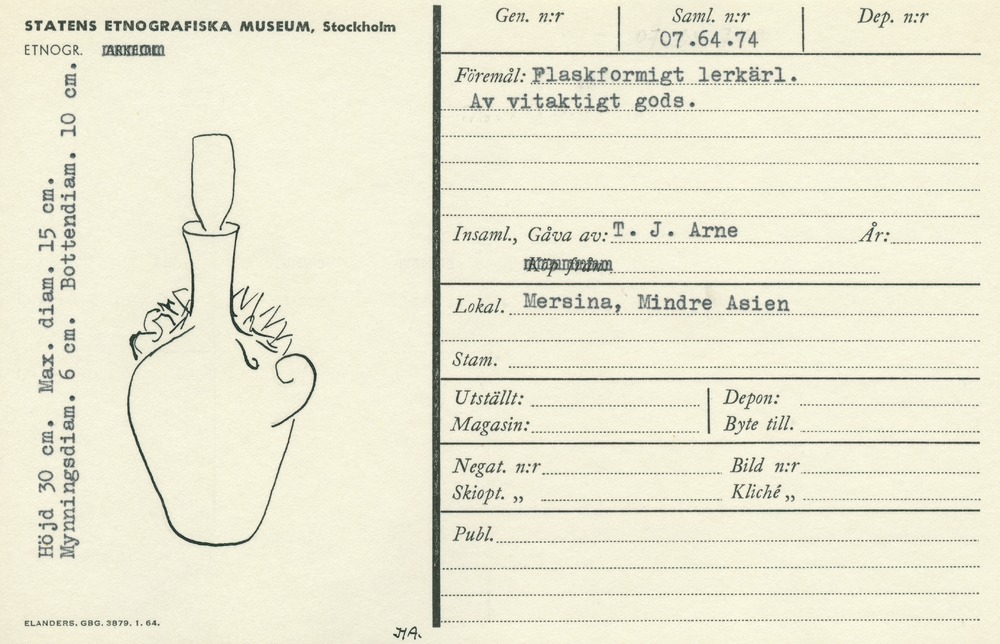 STATENS ETNOGRAFISKA MUSEUM, Stockholm
ETNOGR.
Höjd 30 cm. Max. diam. 15 cm.
Mynningsdiam. 6 cm. Bottendiam. 10 cm.
ELANDERS. GBG. 3879. 1. 64.
Gen. n:r
Saml. n:r
07.64.74
Dep. n:r
Föremål: Flaskformigt lerkärl.
Av vitaktigt gods.
Insaml., Gåva av: T. J. Arne År:
Köp från
Lokal. Mersina, Mindre Asien
Stam.
Utställt: Depon:
Magasin: Byte till.
Negat. n:r Bild n:r
Skiopt. „ Kliché „
Publ.